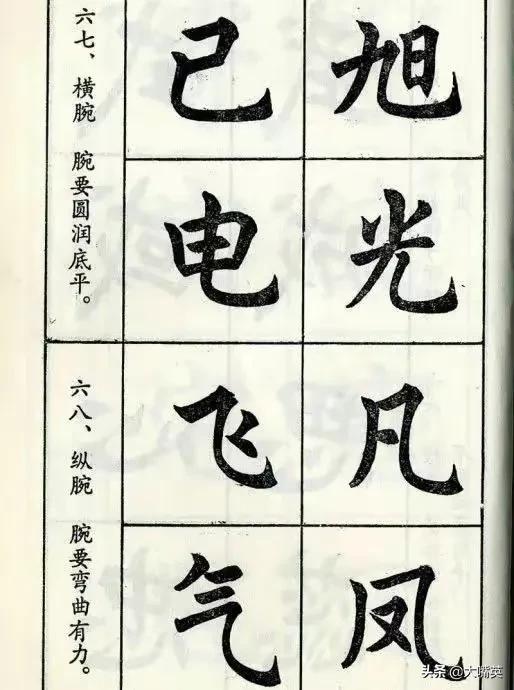 六七、横腕 腕要圆润底平。
已 旭
电 光
六八、纵腕 腕要弯曲有力。
飞 凡
气 凤
头条 @大嘴英